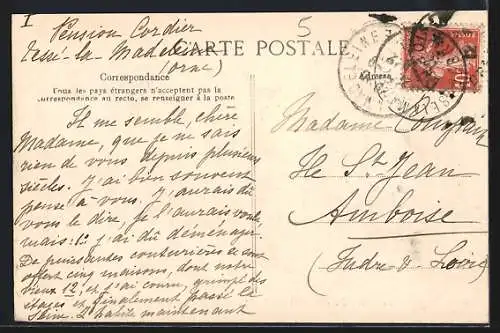 I
5
Pension Cordier
Tessé-la Madeleine
(Orne)
CARTE POSTALE
Correspondance
Tous les pays étrangers n'acceptent pas la
correspondance au recto, se renseigner à la poste
Adresse
Il me semble, chère
Madame, que je ne sais
rien de vous depuis plusieurs
siècles. J'ai bien souvent
pensé à vous. J'aurais dû
vous le dire, je l'aurais voulu
mais: 1° j'ai dû déménager.
De puissantes couturières se sont
offert cinq maisons, dont notre
vieux 12, et j'ai couru, grimpé des
étages et finalement passé la
Seine. J'habite maintenant
Madame
Ile St Jean
Amboise
(Indre & Loire)